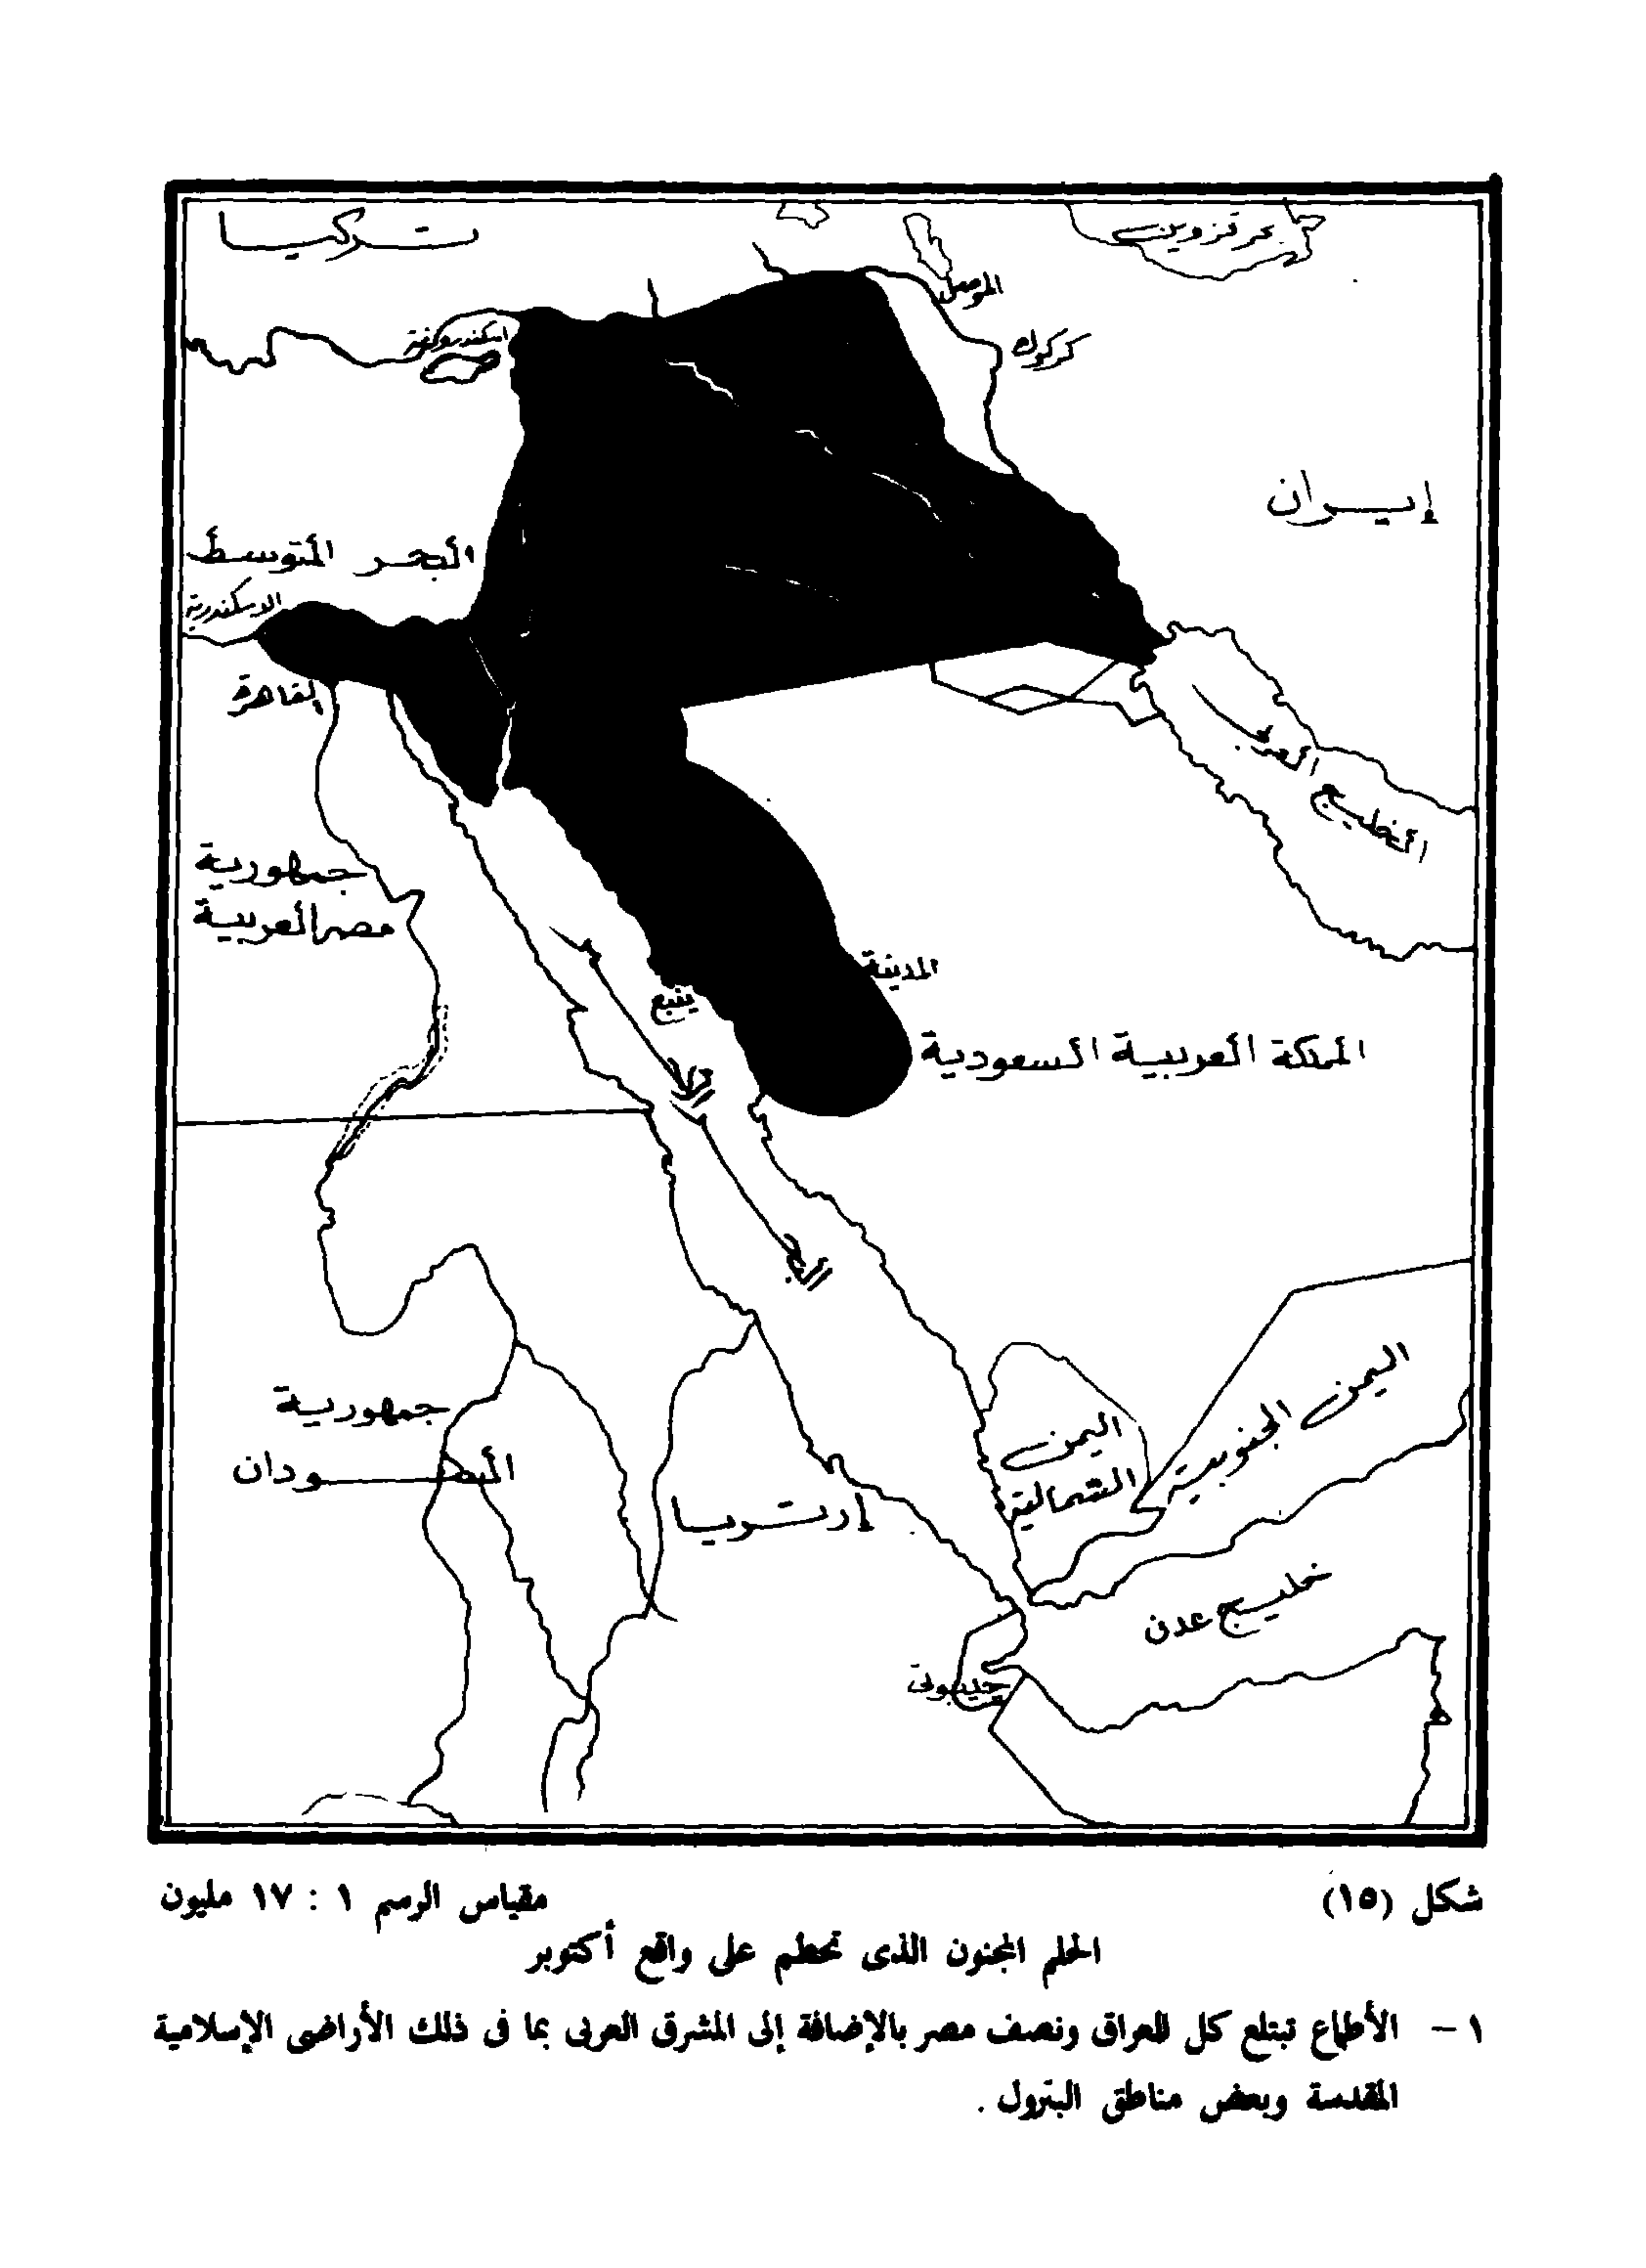 تركيا
بحر قزوين
الموصل
اسكندرونة
كركوك
إيران
البحر المتوسط
الاسكندرية
القاهرة
الخليج العربى
جمهورية
مصر العربية
المدينة
ينبع
المملكة العربية السعودية
جمهورية
السودان
اليمن
الشمالية
اليمن الجنوبية
إرتريا
خليج عدن
شكل (١٥)
مقياس الرسم ١ : ١٧ مليون
الحلم المجنون الذى تحطم على واقع أكتوبر
١ – الأطماع تبتلع كل العراق ونصف مصر بالإضافة إلى المشرق العربى بما فى ذلك الأراضى الإسلامية
المقدسة وبعض مناطق البترول .